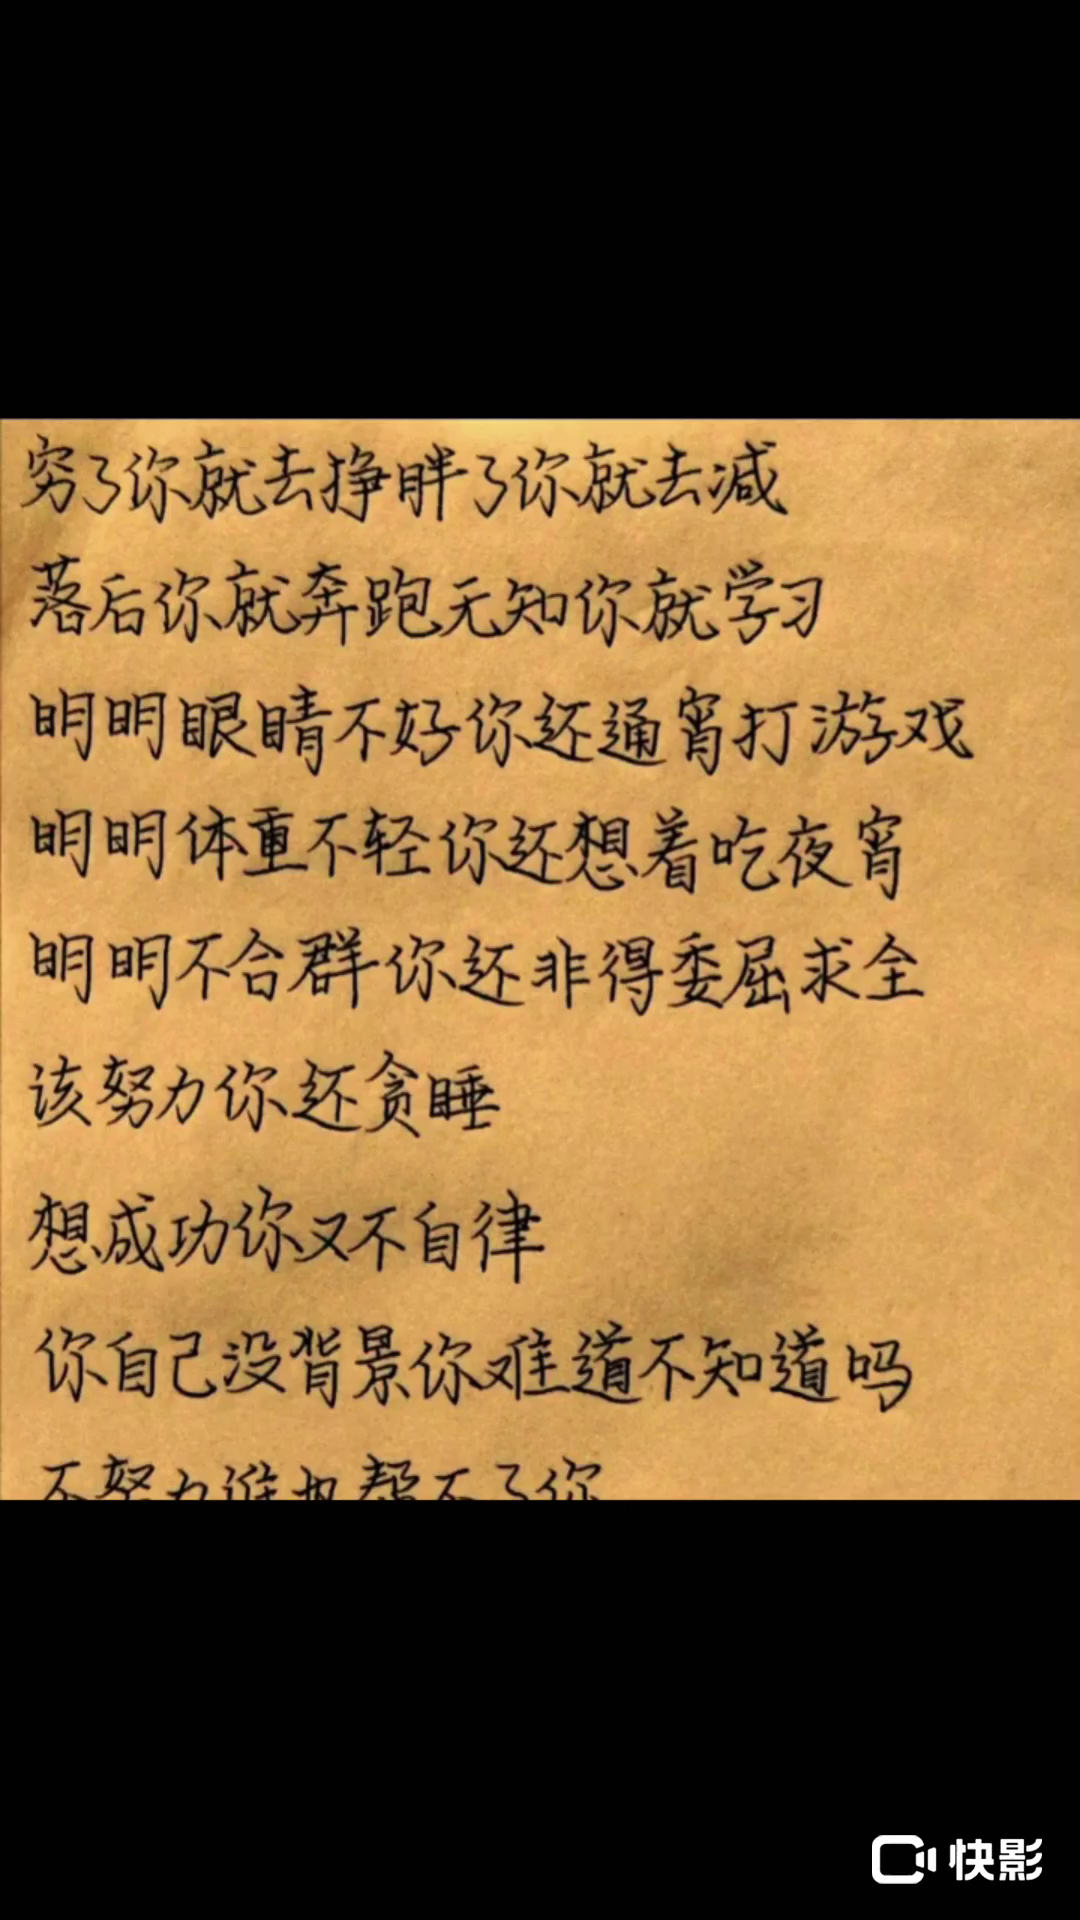 穷了你就去挣胖了你就去减
落后你就奔跑无知你就学习
明明眼睛不好你还通宵打游戏
明明体重不轻你还想着吃夜宵
明明不合群你还非得委屈求全
该努力你还贪睡
想成功你又不自律
你自己没背景你难道不知道吗
不努力谁也帮不了你
快影